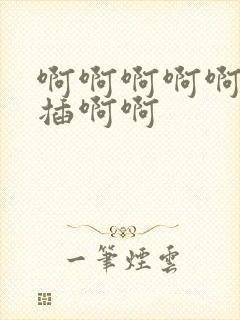 啊啊啊啊啊
插啊啊
一筆煙雲